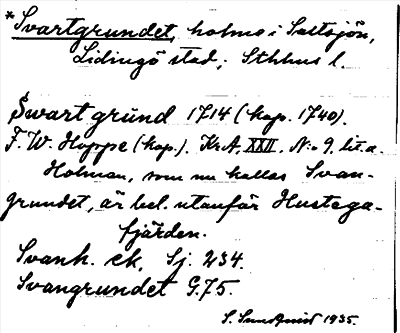 *Svartgrundet, holme i Saltsjön,
Lidingö stad; Sthlms l.
Swartgrund 1714 (kop. 1740).
F. W. Hoppe (kop.). KrA, XXII. N:o 9. lit. a.
Holmen, som nu kallas Svan-
grundet, är bel. utanför Hustega-
fjärden.
Svanh. ek, Sj. 234.
Svangrundet G.75.
S. Sundquist 1935.